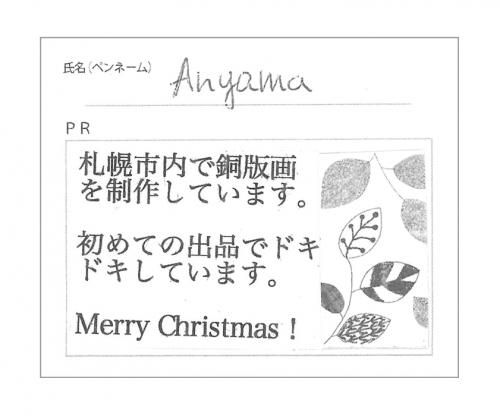 氏名(ペンネーム)
Anyama
PR
札幌市内で銅版画
を制作しています。
初めての出品でドキ
ドキしています。
Merry Christmas!